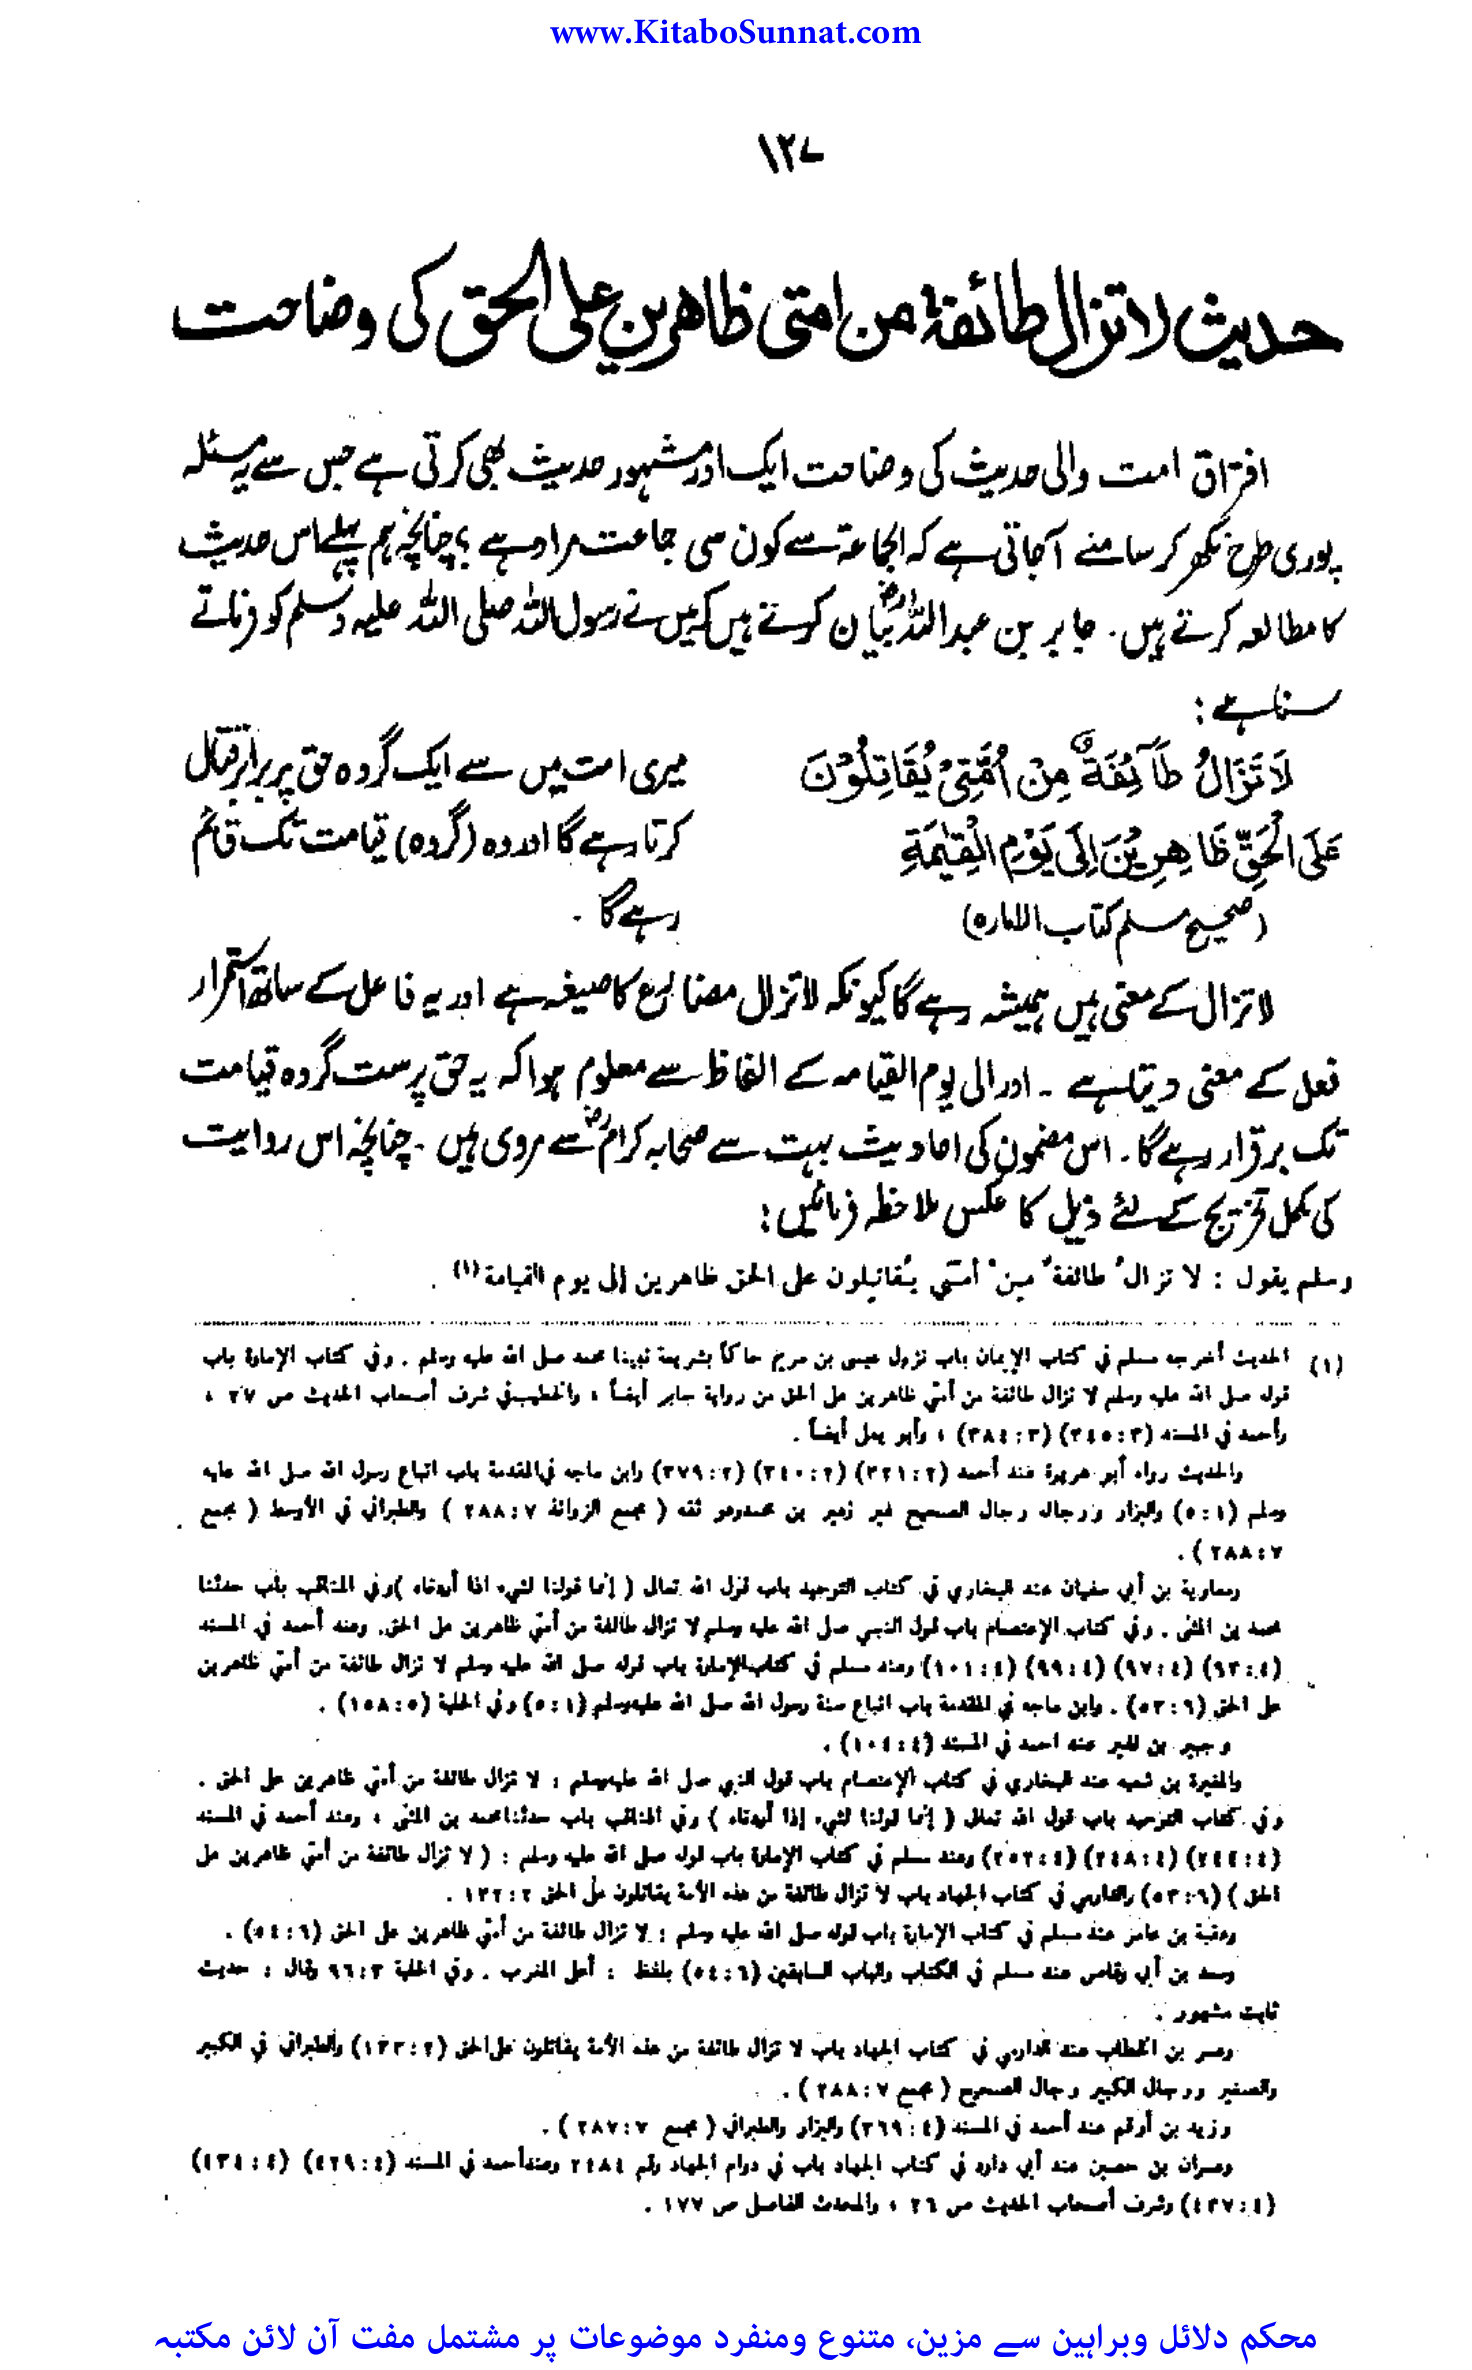 www.KitaboSunnat.com
۱۲۷
حدیث لا تزال طائفة من امتی ظاهرین علی الحق کی وضاحت
افتراق امت والی حدیث کی وضاحت ایک اور مشہور حدیث بھی کرتی ہے جس سے یہ مسئلہ
پوری طرح نکھر کر سامنے آجاتی ہے کہ الجماعۃ سے کون سی جماعت مراد ہے ؟ چنانچہ ہم پہلے اس حدیث
کا مطالعہ کرتے ہیں. جابر بن عبد اللہؓ بیان کرتے ہیں کہ میں نے رسول اللہ صلی اللہ علیہ وسلم کو فرماتے
سنا ہے :
لَا تَزَالُ طَآئِفَةٌ مِنْ اُمَّتِیْ یُقَاتِلُوْنَ
عَلَی الْحَقِّ ظَاهِرِیْنَ اِلَی یَوْمِ الْقِیٰمَةِ
(صحیح مسلم کتاب الامارہ)
میری امت میں سے ایک گروہ حق پر برابر قتال
کرتا رہے گا اور وہ (گروہ) قیامت تک قائم
رہے گا .
لا تزال کے معنی ہیں ہمیشہ رہے گا کیونکہ لا تزال مضارع کا صیغہ ہے اور یہ فاعل کے ساتھ استمرار
فعل کے معنی دیتا ہے ۔ اور الی یوم القیامہ کے الفاظ سے معلوم ہوا کہ یہ حق پرست گروہ قیامت
تک برقرار رہے گا. اس مضمون کی احادیث بہت سے صحابہ کرامؓ سے مروی ہیں . چنانچہ اس روایت
کی مکمل تخریج کے لئے ذیل کا عکس ملاحظہ فرمائیں :
وسلم يقول : لا تزالُ طائفةٌ مِنْ أمتي يُقاتِلون على الحق ظاهرين إلى يوم القيامة (١) .
(١) الحديث أخرجه مسلم في كتاب الإيمان باب نزول عيسى بن مريم حاكماً بشريعة نبينا محمد صلى الله عليه وسلم . وفي كتاب الإمارة باب
قوله صلى الله عليه وسلم لا تزال طائفة من أمتي ظاهرين على الحق من رواية جابر أيضاً ، والخطيب في شرف أصحاب الحديث ص ٢٧ ،
وأحمد في المسند (٣٤٥:٣) (٣٨٤:٣) ، وأبو يعلى أيضاً .
والحديث رواه أبو هريرة عند أحمد (٣٢١:٢) (٣٤٠:٢) (٣٧٩:٢) وابن ماجه في المقدمة باب اتباع رسول الله صلى الله عليه
وسلم (٥:١) والبزار ورجاله رجال الصحيح غير زهير بن محمد وهو ثقة ( مجمع الزوائد ٢٨٨:٧ ) والطبراني في الأوسط ( مجمع
٢٨٨:٧ ) .
ومعاوية بن أبي سفيان عند البخاري في كتاب التوحيد باب قول الله تعالى ( إنما قولنا لشيء اذا أردناه ) وفي المناقب باب حدثنا
محمد بن المثنى . وفي كتاب الإعتصام باب قول النبي صلى الله عليه وسلم لا تزال طائفة من أمتي ظاهرين على الحق. وعند أحمد في المسند
(٩٣:٤) (٩٧:٤) (٩٩:٤) (١٠١:٤) وعند مسلم في كتاب الإمارة باب قوله صلى الله عليه وسلم لا تزال طائفة من أمتي ظاهرين
على الحق (٥٣:٦) . وابن ماجه في المقدمة باب اتباع سنة رسول الله صلى الله عليه وسلم (٥:١) وفي الحلية (١٥٨:٥) .
وجبير بن نفير عند احمد في المسند (١٠٤:٤) .
والمغيرة بن شعبه عند البخاري في كتاب الإعتصام باب قول النبي صلى الله عليه وسلم : لا تزال طائفة من أمتي ظاهرين على الحق .
وفي كتاب التوحيد باب قول الله تعالى ( إنما قولنا لشيء إذا أردناه ) وفي المناقب باب حدثنا محمد بن المثنى ، وعند أحمد في المسند
(٢٤٤:٤) (٢٤٨:٤) (٢٥٢:٤) وعند مسلم في كتاب الإمارة باب قوله صلى الله عليه وسلم : ( لا تزال طائفة من أمتي ظاهرين على
الحق ) (٥٣:٦) والدارمي في كتاب الجهاد باب لا تزال طائفة من هذه الأمة يقاتلون على الحق ١٣٢:٢ .
وعقبة بن عامر عند مسلم في كتاب الإمارة باب قوله صلى الله عليه وسلم : لا تزال طائفة من أمتي ظاهرين على الحق (٥٤:٦) .
وسعد بن أبي وقاص عند مسلم في الكتاب والباب السابقين (٥٤:٦) بلفظ : أهل المغرب . وفي الحلية ٩٦:٣ وقال : حديث
ثابت مشهور .
وعمر بن الخطاب عند الدارمي في كتاب الجهاد باب لا تزال طائفة من هذه الأمة يقاتلون على الحق (١٣٣:٢) والطبراني في الكبير
والصغير ورجال الكبير رجال الصحيح ( مجمع ٢٨٨:٧ ) .
وزيد بن أرقم عند أحمد في المسند (٣٦٩:٤) والبزار والطبراني ( مجمع ٢٨٧:٧ ) .
وعمران بن حصين عند أبي داود في كتاب الجهاد باب في دوام الجهاد رقم ٢٤٨٤ وعند أحمد في المسند (٤٢٩:٤) (٤٣٤:٤)
(٤٣٧:٤) وشرف أصحاب الحديث ص ٢٦ ، والمحدث الفاصل ص ١٧٧ .
محکم دلائل وبراہین سے مزین، متنوع ومنفرد موضوعات پر مشتمل مفت آن لائن مکتبہ